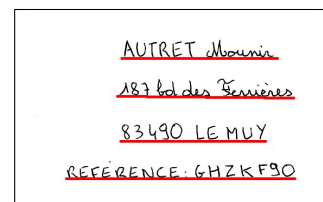 AUTRET Mounir
187 bd des Ferrières
83490 LE MUY
REFÉRENCE: GHZKF90